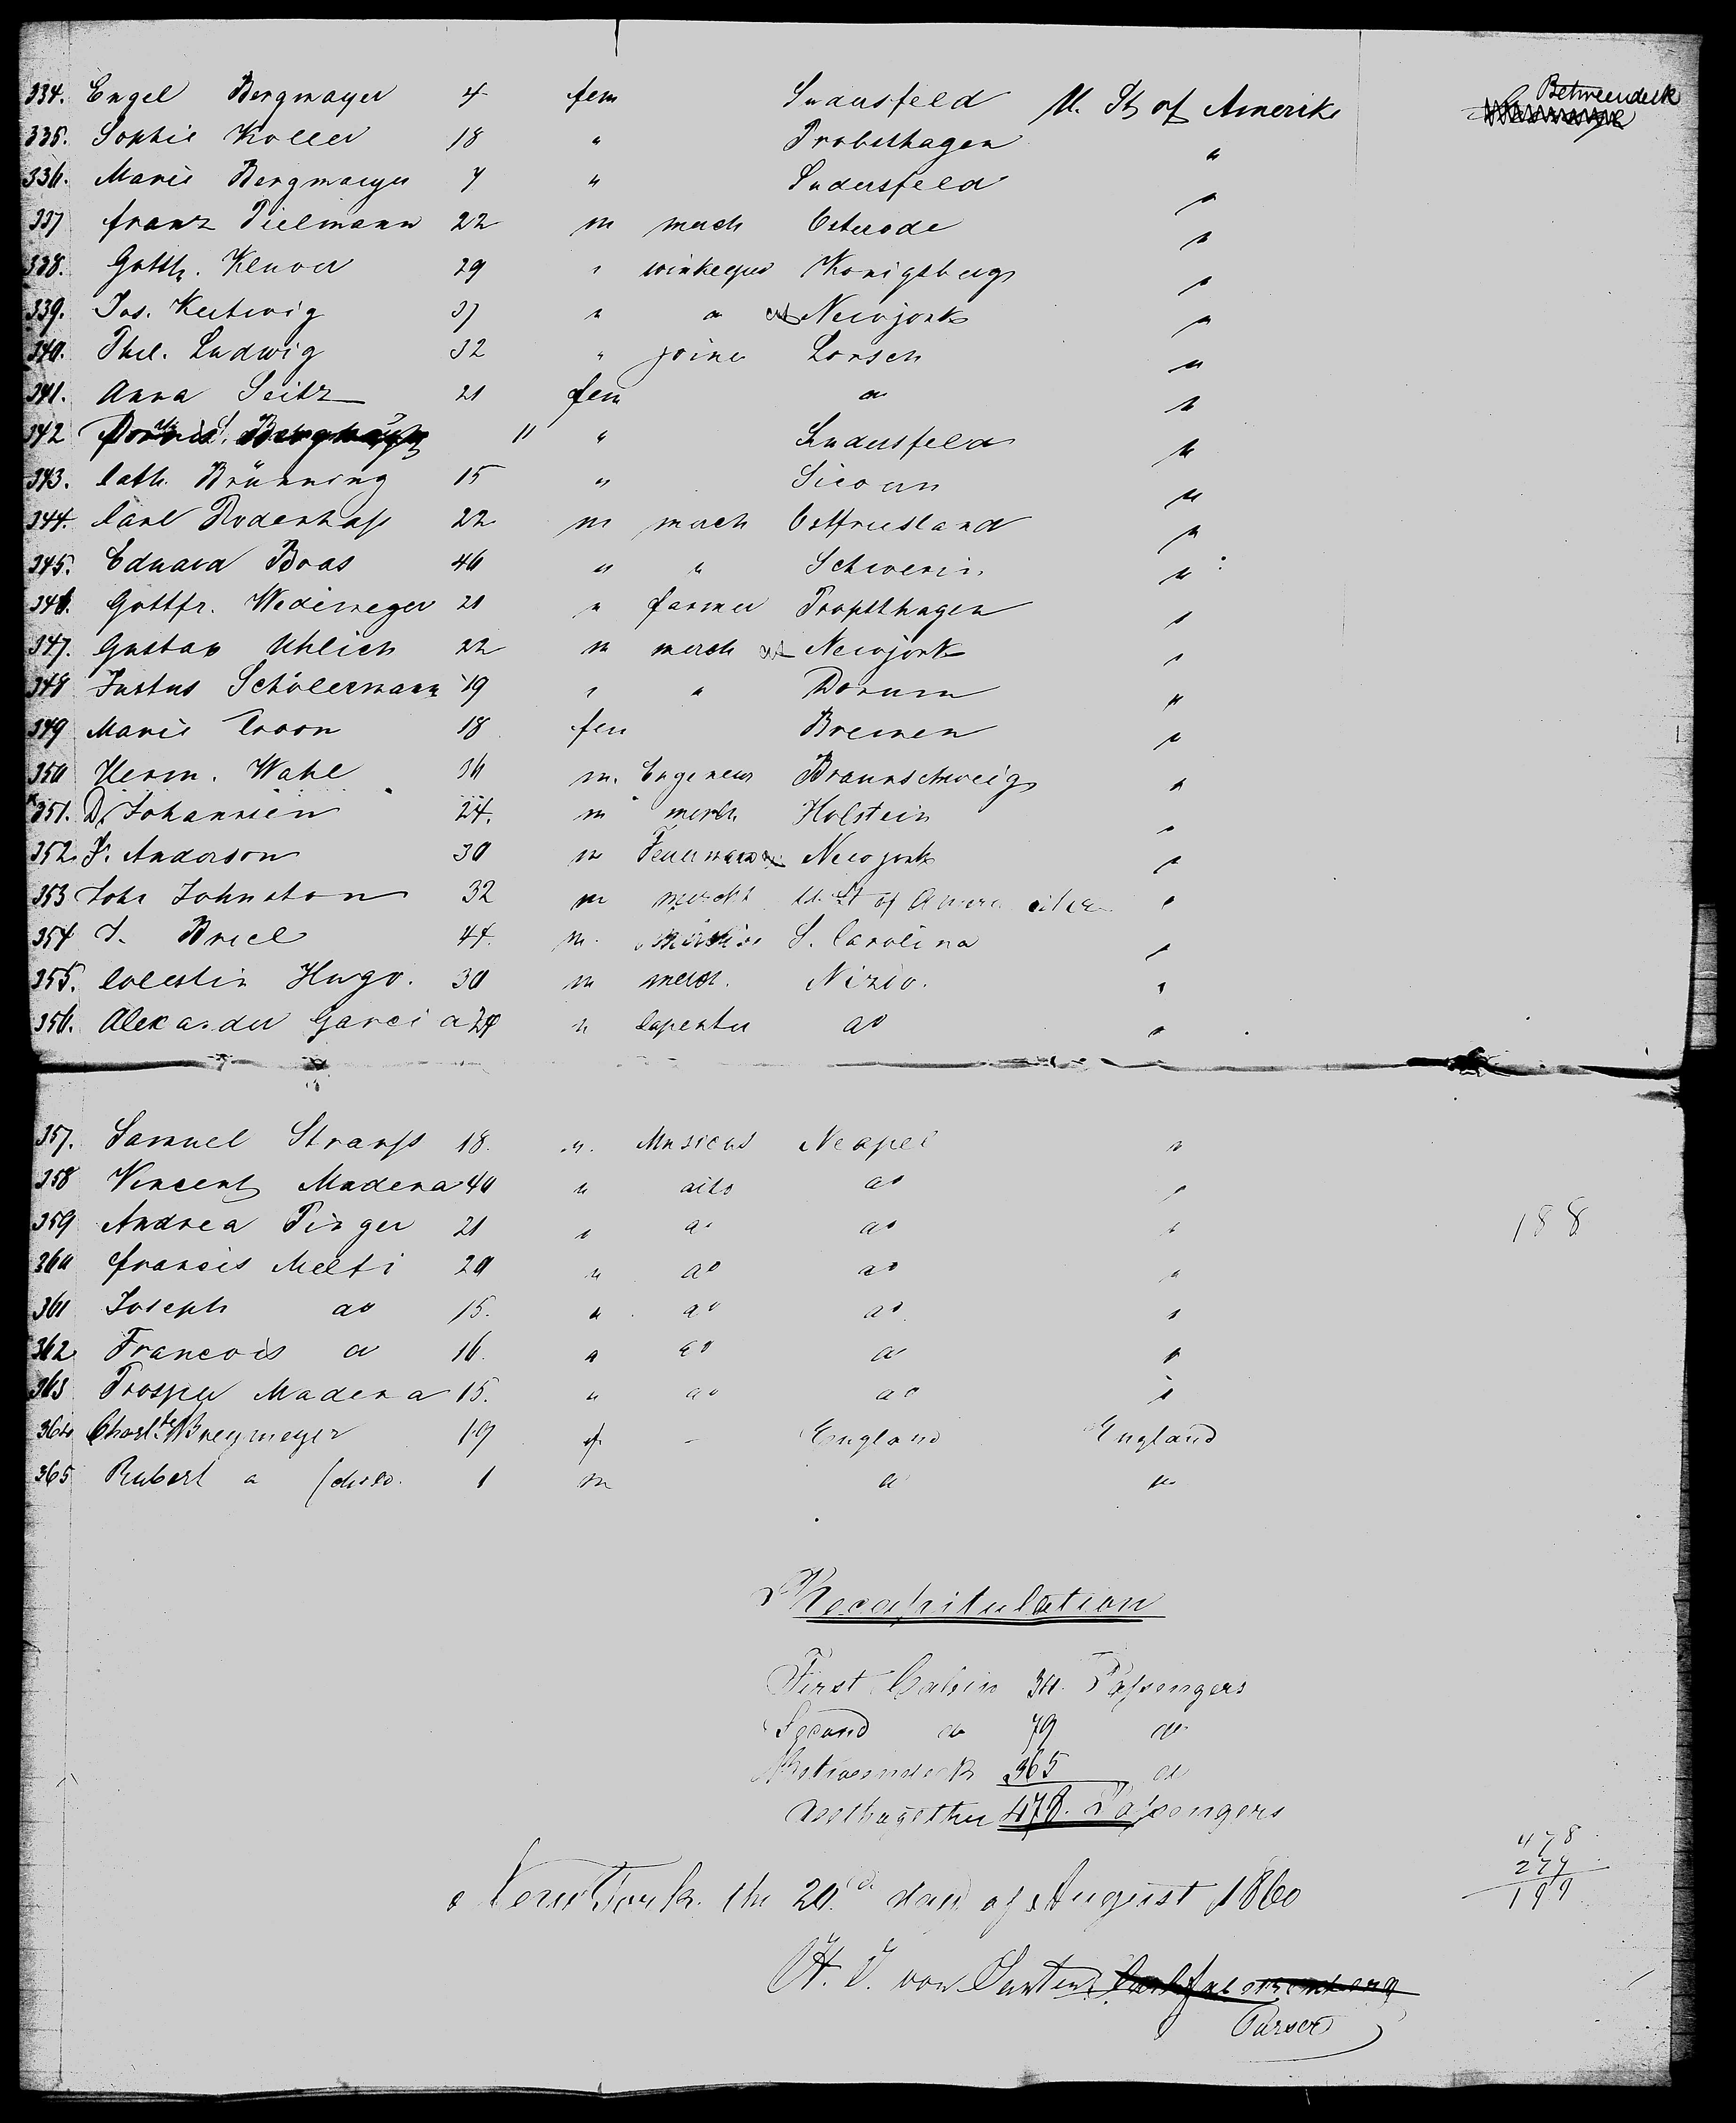 Betweendeck
334. Engel Bergmayer 4 fem Ludersfeld U. St of Amerika
335. Sophie Koller 18 " Probsthagen "
336. Marie Bergmayer 7 " Ludersfeld "
337 Franz Tielmann 22 m merch Osterode "
338. Gotth. 29 " Konigsberg "
339. Jos. 37 " " Newjork "
340. Phil. Ludwig 32 " joiner Lorsch "
341. Anna Seitz 21 fem " "
342 11 " Ludersfeld "
343. Cath. Brünning 15 " "
344. Carl 22 m merch Ostfriesland "
345. Eduard Boas 46 " " Schwerin "
346. Gottfr. 21 " farmer Propsthagen "
347. Gustav Uhlich 22 m merch Newjork "
348 Justus Schölermann 19 " " Dorum "
349 Marie Croon 18 fem Bremen "
350 Herm. Wahl 36 m. Engeneur Braunschweig "
351. D. Johannsen 24. m merch Holstein "
352. Anderson 30 m Newjork "
353 John Johnston 32 m mercht U. St of America "
354 J. Briel 44. m. S. Carolina "
355. Celestin Hugo. 30 m merch. "
356. Alexander Garcia 24 " Capenter do "
357. Samuel Strauss 18. m. Musicus Neapel "
358 Vincent Madena 40 " dito do "
359 Andrea Pinger 21 " do do " 188
360 Francis Melfi 20 " do do "
361 Joseph do 15. " do do "
362 Francois do 16. " do do "
363 Prosper Madena 15. " do do "
364 Charl.te Breymeyer 19 f – England England
365 Robert " 1 m " "
Recapitulation
First Cabin 34 Passengers
Second do 79 do
Betweendeck 365 do
altogether 478. Passengers
478
279
199
New York. the 20. day of August 1860
H. J. von Santen
Purser